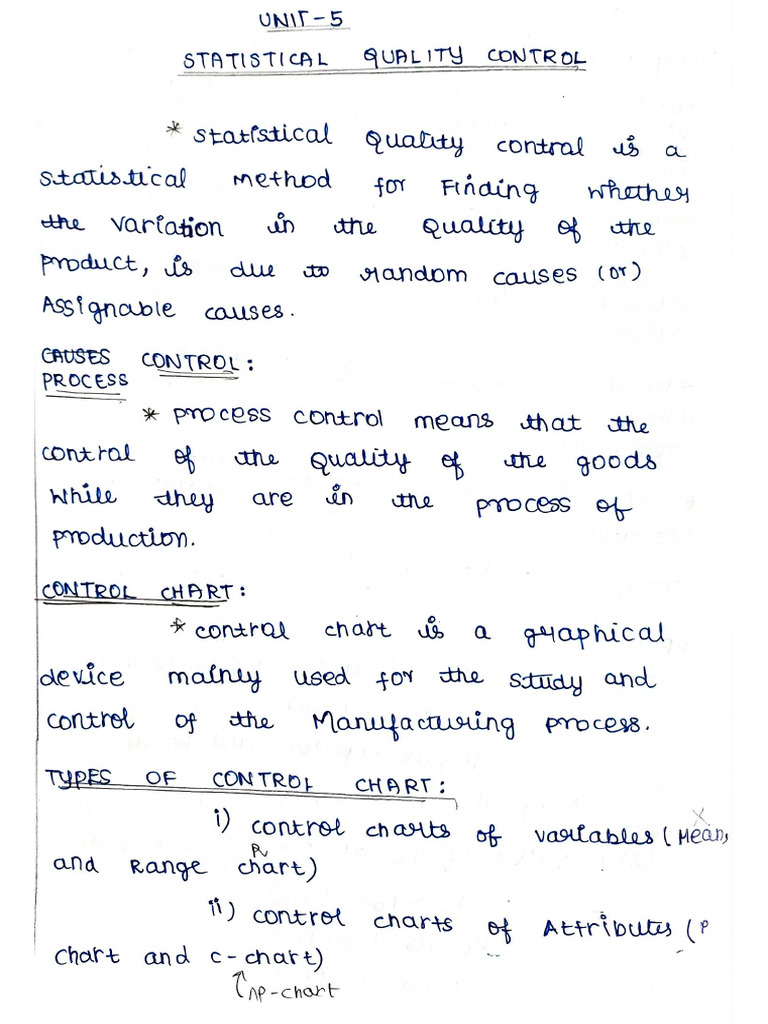 UNIT-5
STATISTICAL QUALITY CONTROL
* Statistical Quality control is a
statistical method for Finding whether
the variation in the Quality of the
product, is due to random causes (or)
Assignable causes.
CAUSES CONTROL:
PROCESS
* process control means that the
control of the Quality of the goods
while they are in the process of
production.
CONTROL CHART:
* control chart is a graphical
device mainly used for the study and
control of the Manufacturing process.
TYPES OF CONTROL CHART:
X
i) control charts of variables (Mean,
R
and Range chart)
ii) control charts of Attributes (P
chart and c-chart)
np-chart